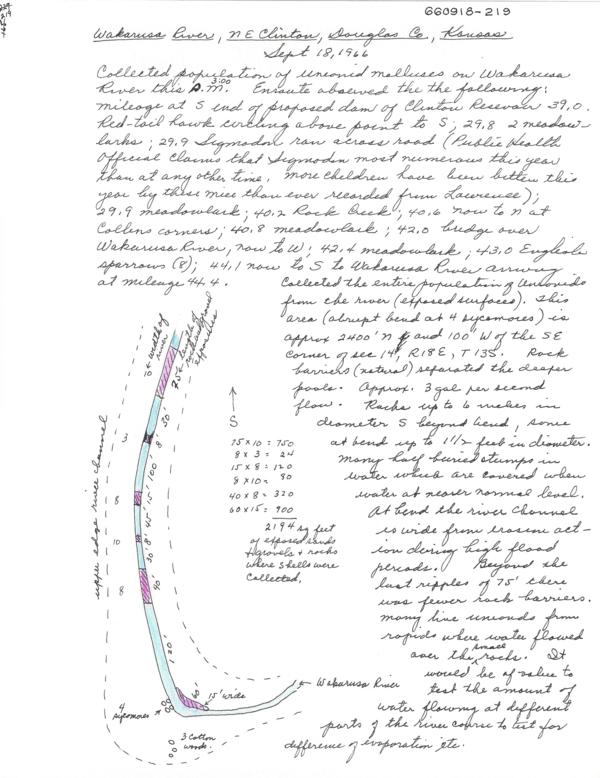 660918-219
Wakarusa River, NE Clinton, Douglas Co, Kansas
Sept 18, 1966
Collected population of unionid molluscs on Wakarusa
River this P.M. 3:00 Enroute observed the the following:
mileage at S end of proposed dam of Clinton Resevoir 39.0.
Red-tail hawk circling above point to S; 29.8 2 meadow-
larks; 29.9 Sigmodon ran across road (Public Health
Official Claims that Sigmodon most numerous this year
than at any other time. More children have been bitten this
year by these mice than ever recorded from Lawrence);
29.9 meadowlark; 40.2 Rock Creek; 40.6 now to N at
Collins corners; 40.8 meadowlark; 42.0 bridge over
Wakarusa River, now to W; 42.4 meadowlark; 43.0 English
sparrows (8); 44.1 now to S to Wakarusa River arriving
at mileage 44.4.
Collected the entire population of Unionids
from the river (exposed surfaces). This
area (abrupt bend at 4 sycamores) is
approx 2400' N of and 100' W of the SE
corner of sec 14, R18E, T13S. Rock
barriers (natural) separated the deeper
pools. Approx. 3 gal per second
flow. Rocks up to 6 inches in
diameter S beyond bend, some
at bend up to 1 1/2 feet in diameter.
Many half buried stumps in
water which are covered when
water at nearer normal level.
At bend the river channel
is wide from erosion act-
ion during high flood
periods. Beyond the
last ripples of 75' there
was fewer rock barriers.
Many live unionids from
rapids where water flowed
over the small rocks. It
would be of value to
test the amount of
water flowing at different
parts of the river course to test for
difference of evaporation etc.
width of
river
75' length of
exposures
S
75 x 10 = 750
8 x 3 = 24
15 x 8 = 120
8 x 10 = 80
40 x 8 = 320
60 x 15 = 900
2194 sq feet
of exposed sands
& gravels & rocks
where shells were
collected.
upper edge river channel
50'
3
8'
100
8
15'
45'
10
8'
30'
8
40'
120'
60'
15' wide
Wakarusa River
4
sycamores
3 Cotton
woods.